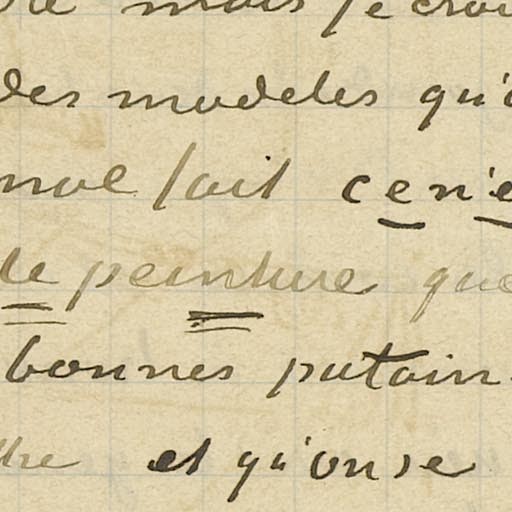 mais je crois
des modeles qu'o
mal fait ce n'e
de peinture que
bonnes putain
et qu'on se